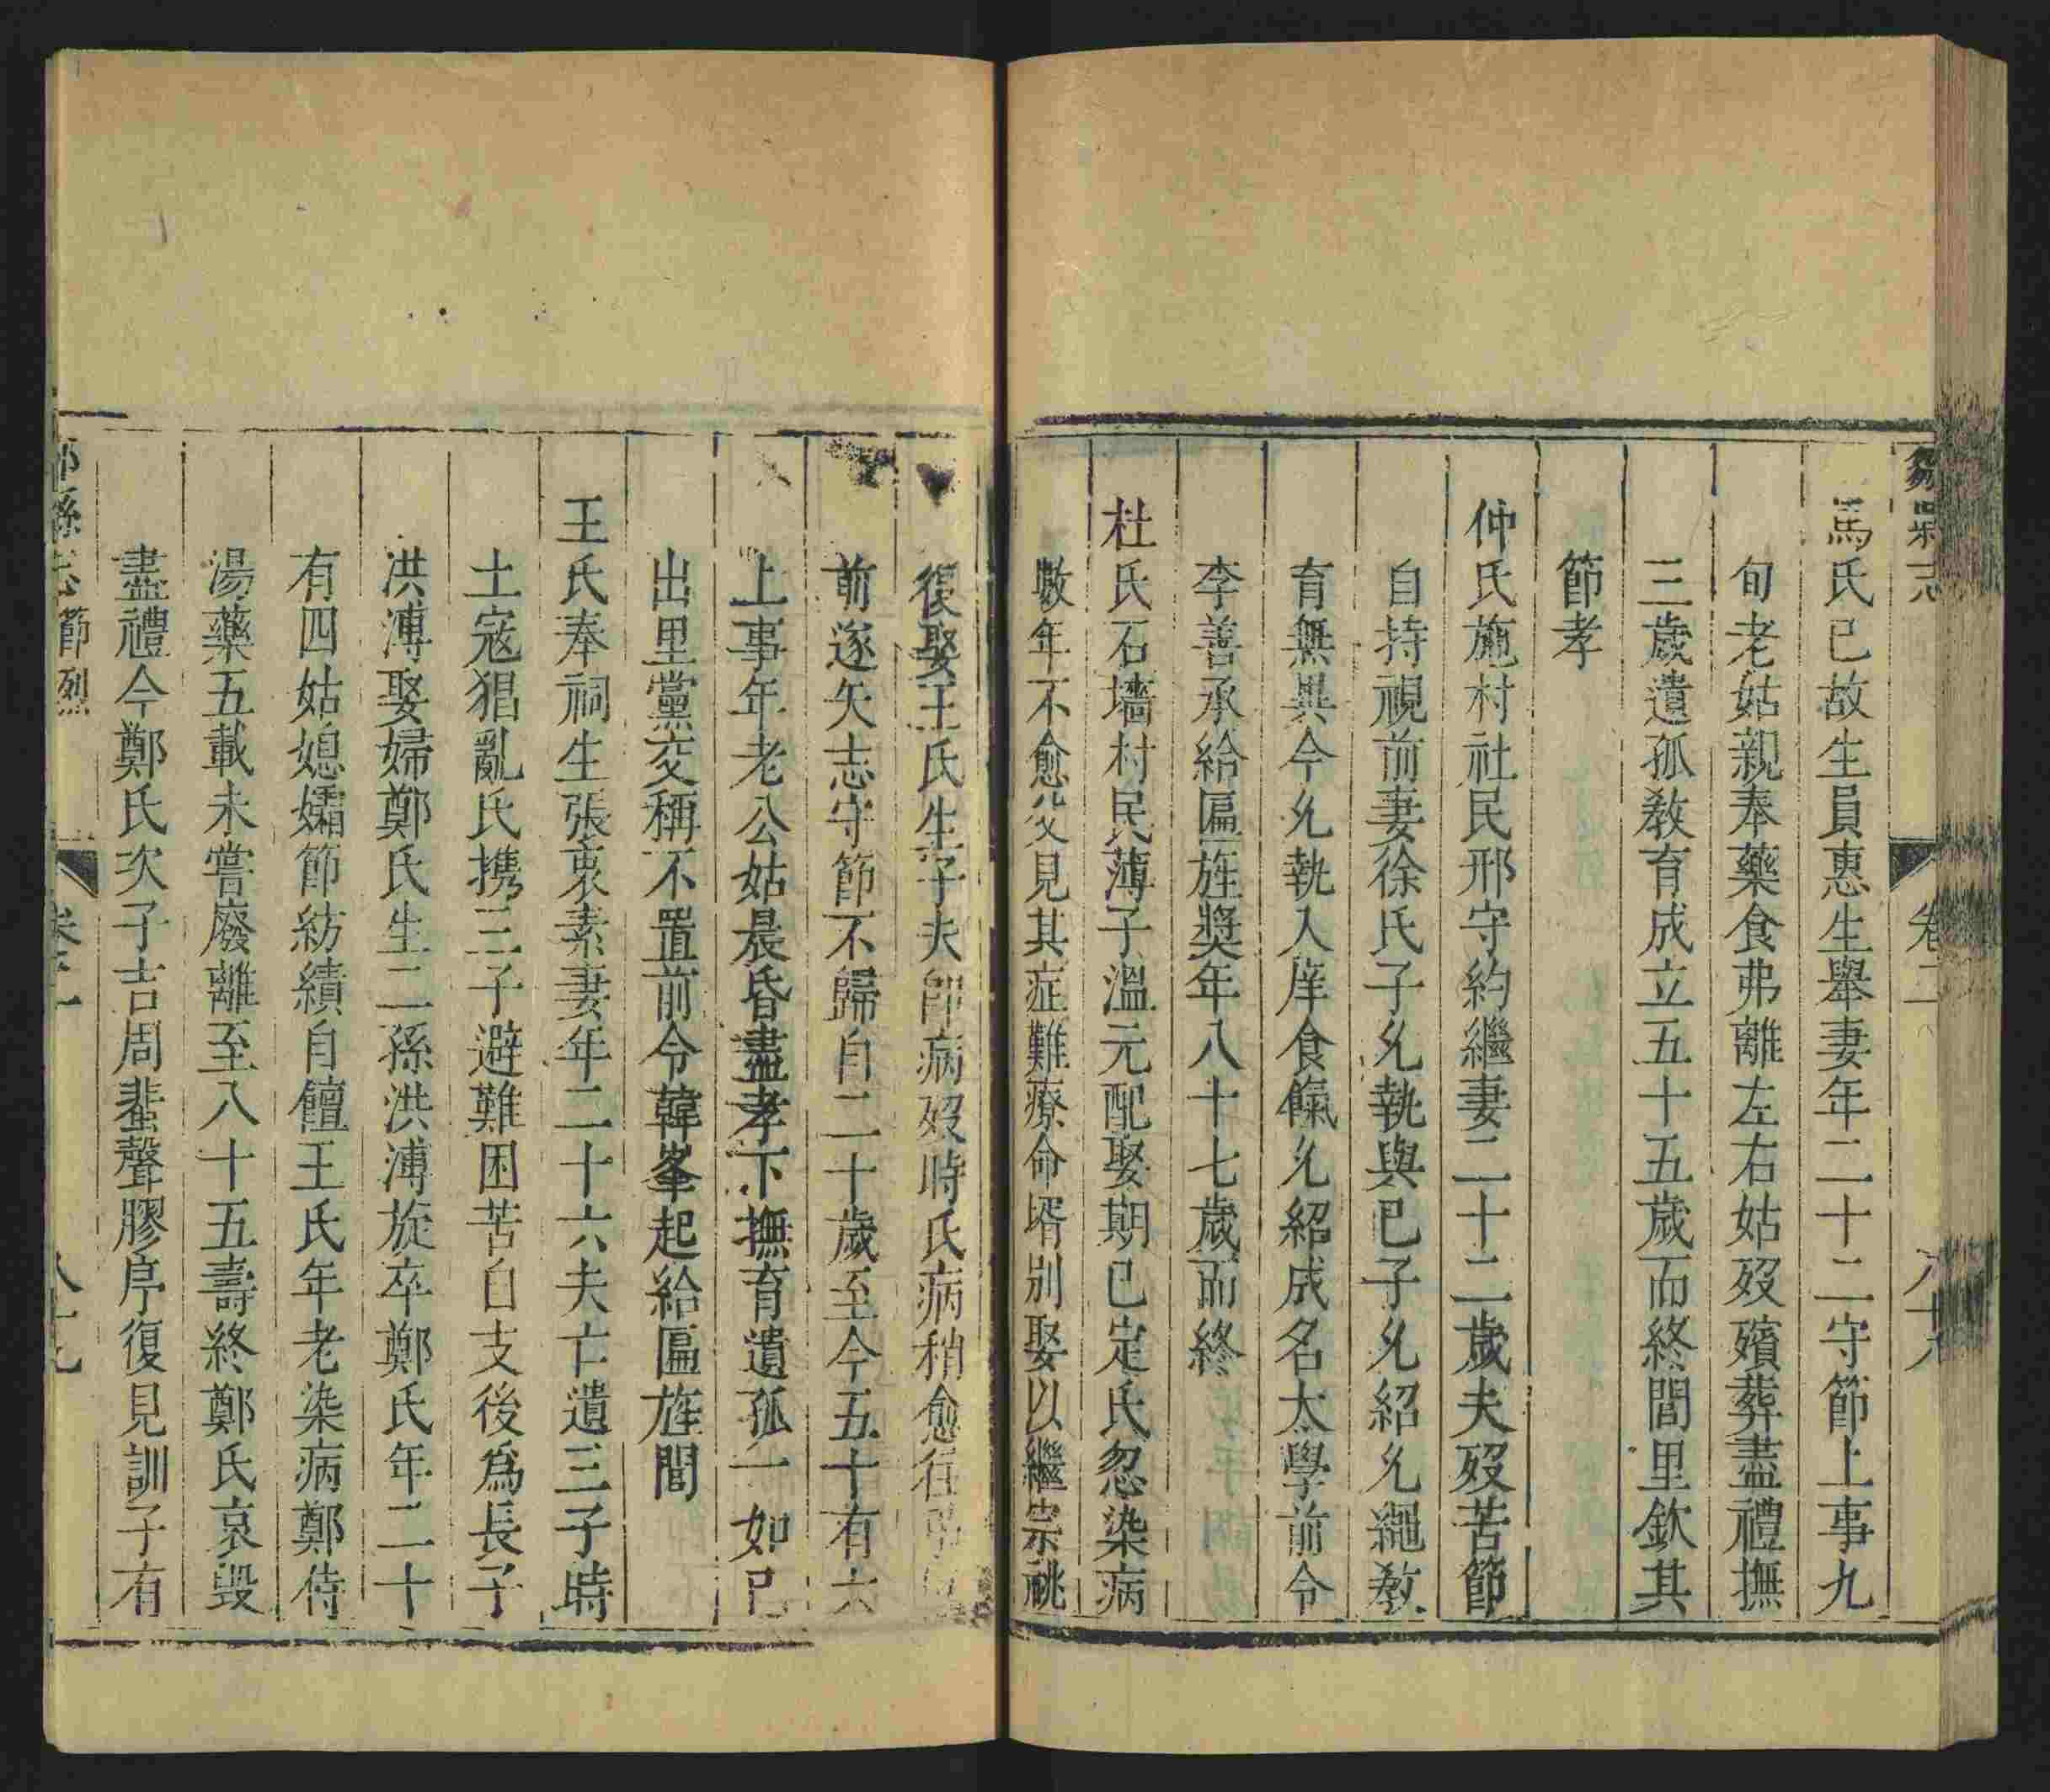 卷二
馬氏已故生員惠生舉妻年二十二守節上事九
旬老姑親奉藥食弗離左右姑歿殯葬盡禮撫
三歲遺孤敎育成立五十五歲而終閭里欽其
節孝
仲氏施村社民邢守約繼妻二十二歲夫歿苦節
自持視前妻徐氏子允執與已子允紹允繩敎
育無異今允執入庠食餼允紹成名太學前令
李善承給匾旌獎年八十七歲而終
杜氏石墻村民薄子溫元配娶期已定氏忽染病
數年不愈父見其症難療命壻别娶以繼宗祧
復娶王氏生子夫卽病歿時氏病稍愈往
前遂矢志守節不歸自二十歲至今五十有六
上事年老公姑晨昏盡孝下撫育遺孤一如已
出里黨交稱不置前令韓峯起給匾旌閭
王氏奉祠生張衷素妻年二十六夫亡遺三子時
土寇猖亂氏携三子避難困苦自支後爲長子
洪溥娶婦鄭氏生二孫洪溥旋卒鄭氏年二十
有四姑媳孀節紡績自饘王氏年老染病鄭侍
湯藥五載未嘗廢離至八十五壽終鄭氏哀毀
盡禮今鄭氏次子吉周蜚聲膠序復見訓子有
節烈